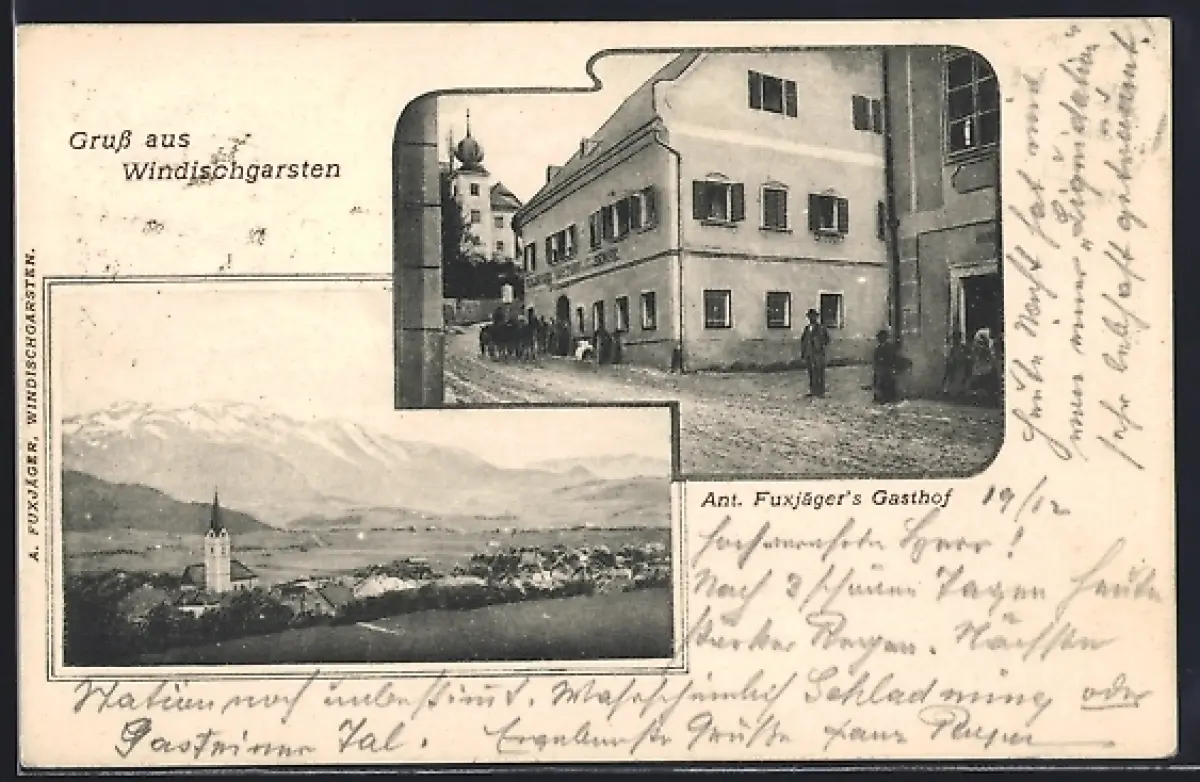 Gruß aus
Windischgarsten
A. FUXJÄGER, WINDISCHGARSTEN.
Ant. Fuxjäger's Gasthof
19/12
Hochverehrter Herr!
Nach 3 schönen Tagen heute
starker Regen. Nächste
Station noch unbestimmt. Wahrscheinlich Schladming oder
Gasteiner Tal. Ergebenste Grüße
Heute Nacht hat mir
von "Liquidation"
sehr lebhaft geträumt.